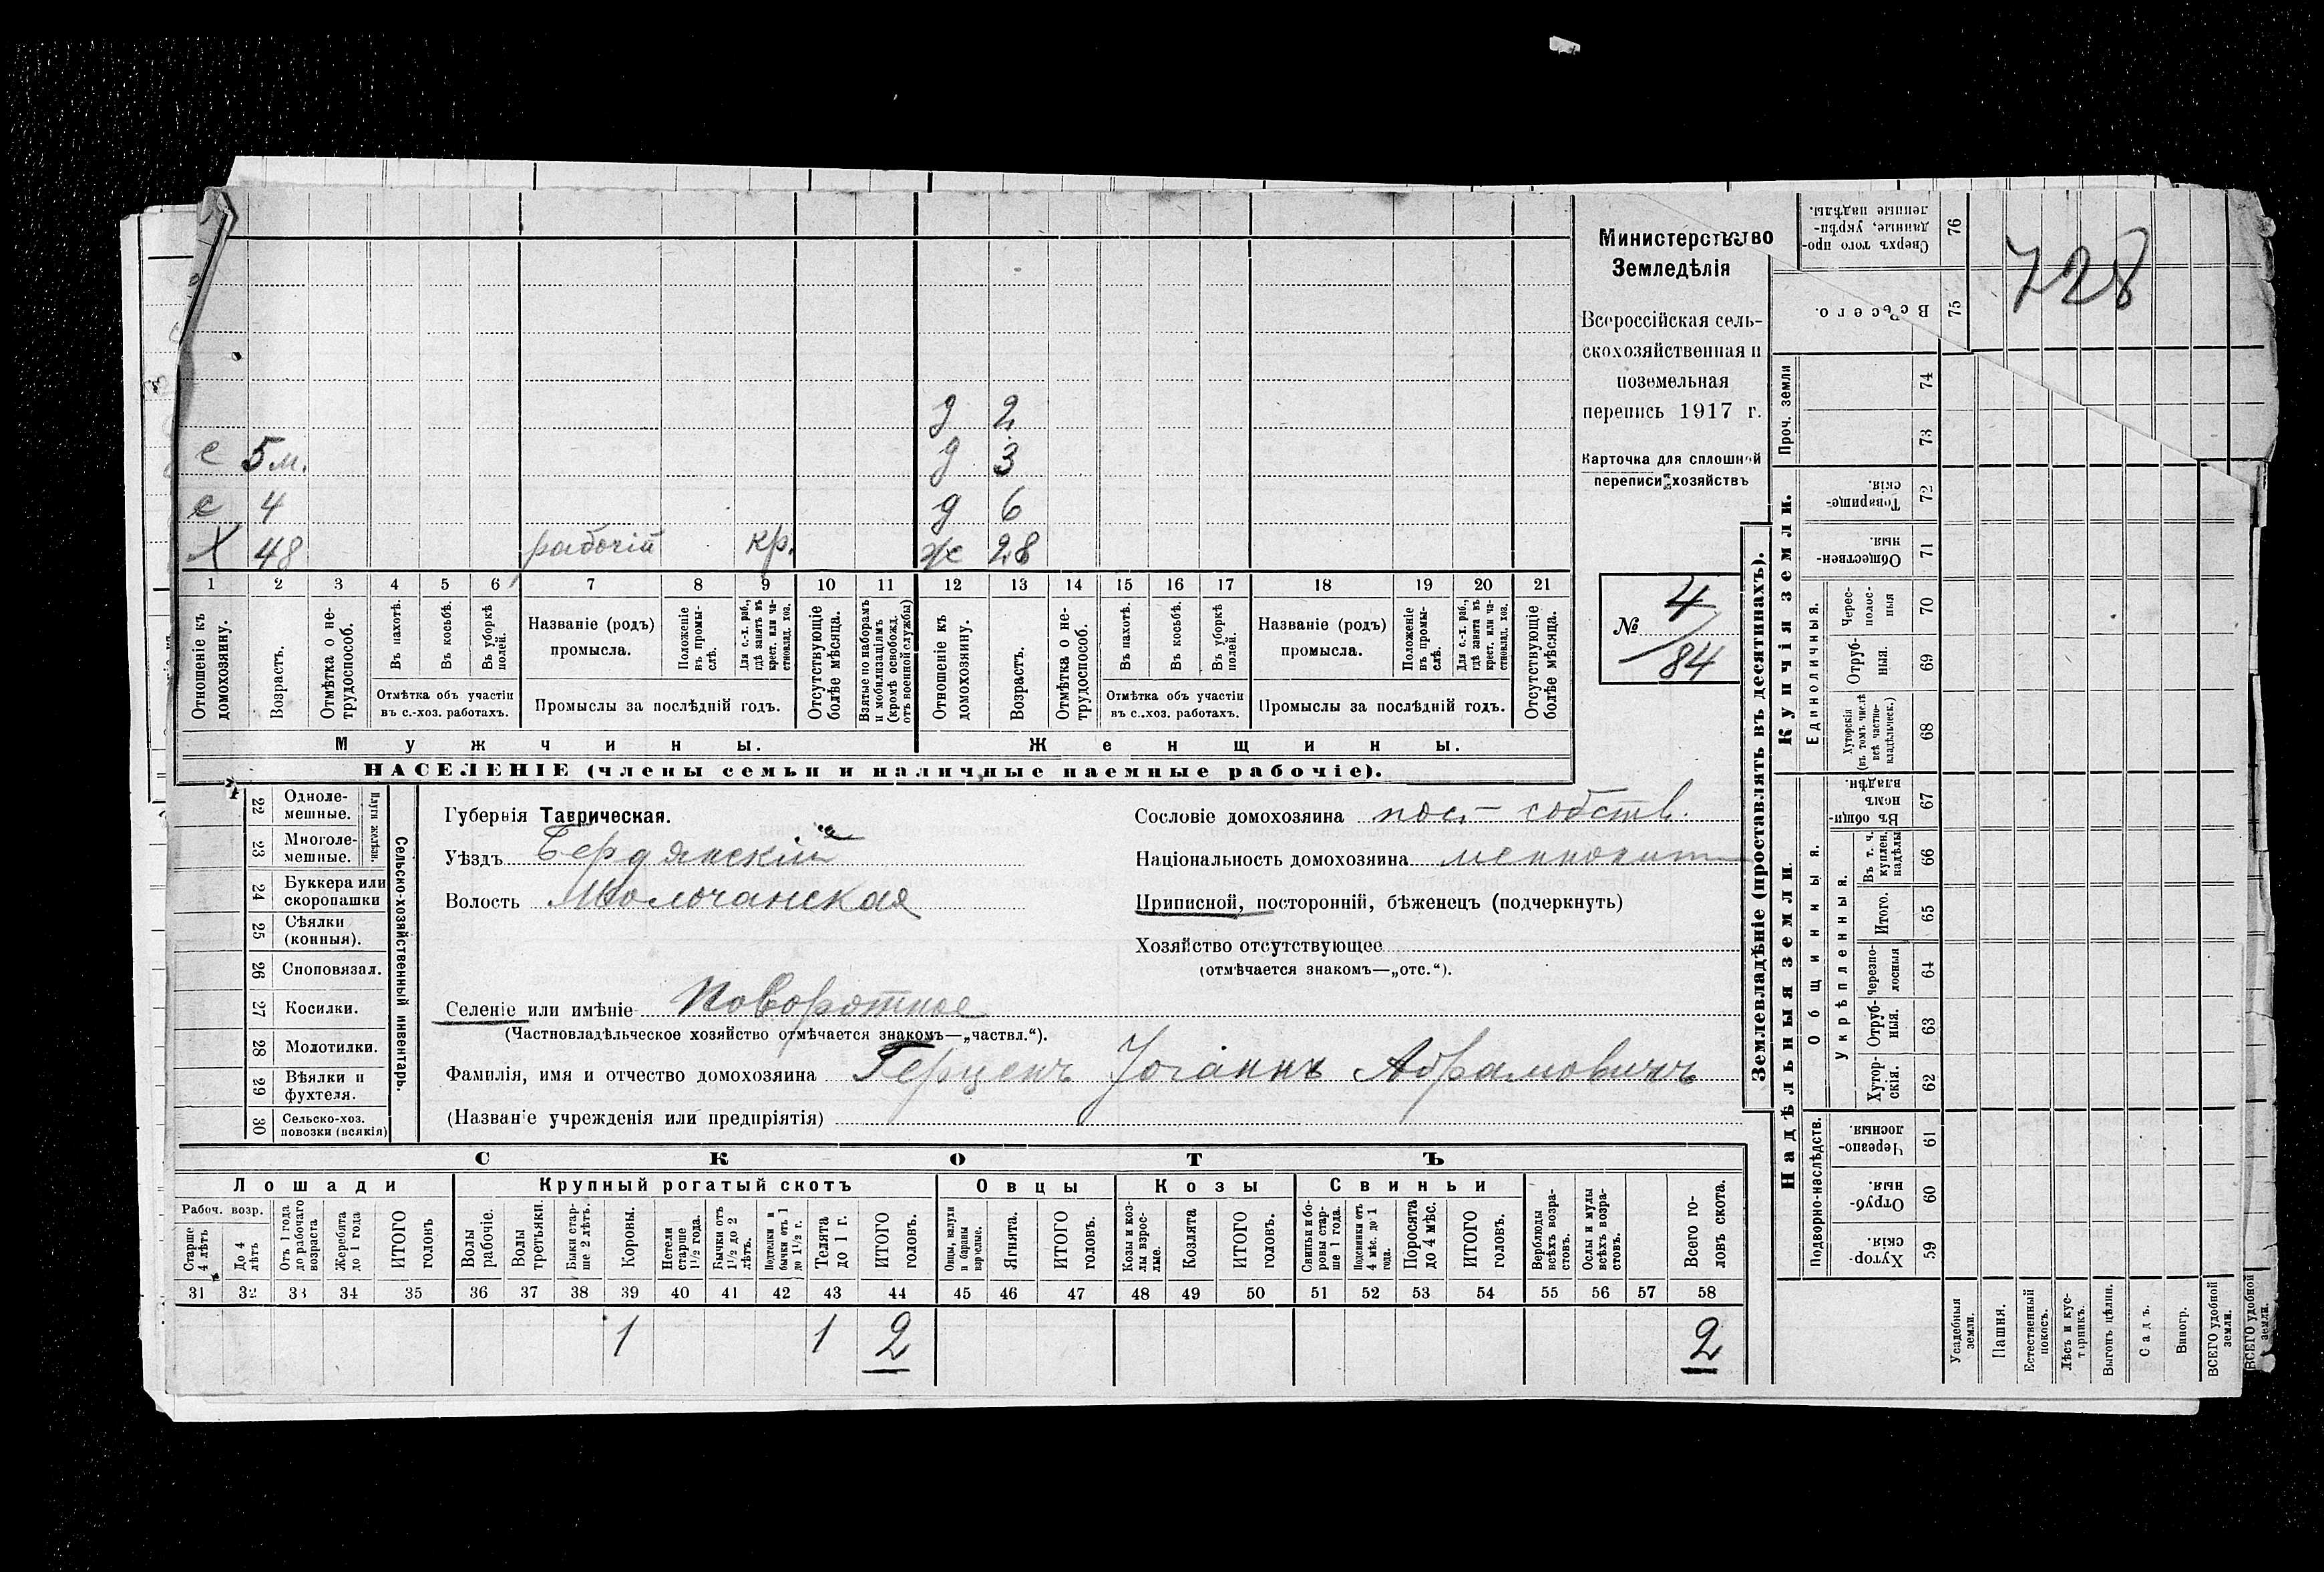 728
Министерство
Земледѣлія
Всероссійская сель-
скохозяйственная и
поземельная
перепись 1917 г.
Карточка для сплошной
переписи хозяйствъ
№ 4/84
д 2
с 5 м. д 3
с 4 д 6
Х 48 рабочій кр. ж 28
1 2 3 4 5 6 7 8 9 10 11 12 13 14 15 16 17 18 19 20 21
Отношеніе къ домохозяину.
Возрастъ.
Отмѣтка о не-трудоспособ.
Въ пахотѣ.
Въ косьбѣ.
Въ уборкѣ полей.
Отмѣтка объ участіи
въ с.-хоз. работахъ.
Названіе (родъ)
промысла.
Положеніе въ промы-слѣ.
Для с.-х. раб., гдѣ занятъ въ крест. или ча-стновлад. хоз.
Промыслы за послѣдній годъ.
Отсутствующіе болѣе мѣсяца.
Взятые по наборамъ и мобилизаціямъ (кромѣ освобожд. отъ военной службы)
Отношеніе къ домохозяину.
Возрастъ.
Отмѣтка о не-трудоспособ.
Въ пахотѣ.
Въ косьбѣ.
Въ уборкѣ полей.
Отмѣтка объ участіи
въ с.-хоз. работахъ.
Названіе (родъ)
промысла.
Положеніе въ промы-слѣ.
Для с.-х. раб., гдѣ занята въ крест. или ча-стновлад. хоз.
Промыслы за послѣдній годъ.
Отсутствующіе болѣе мѣсяца.
Мужчины. Женщины.
НАСЕЛЕНІЕ (члены семьи и наличные наемные рабочіе).
22 Одноле-мешные.
23 Многоле-мешные.
Плуги желѣзн.
24 Буккера или скоропашки
25 Сѣялки (конныя).
26 Сноповязал.
27 Косилки.
28 Молотилки.
29 Вѣялки и фухтеля.
30 Сельско-хоз. повозки (всякія)
Сельско-хозяйственный инвентарь.
Губернія Таврическая.
Уѣздъ Бердянскій
Волость Молочанская
Селеніе или имѣніе Поворотное
(Частновладѣльческое хозяйство отмѣчается знакомъ—„частвл.“).
Фамилія, имя и отчество домохозяина Герценъ Іоганнъ Абрамовичъ
(Названіе учрежденія или предпріятія)
Сословіе домохозяина пос. собств.
Національность домохозяина меннонит
Приписной, посторонній, бѣженецъ (подчеркнуть)
Хозяйство отсутствующее
(отмѣчается знакомъ—„отс.“).
СКОТЪ
Лошади Крупный рогатый скотъ Овцы Козы Свиньи
Рабоч. возр.
Старше 4 лѣтъ
До 4 лѣтъ
Отъ 1 года до рабочаго возраста
Жеребята до 1 года
ИТОГО головъ
Волы рабочіе.
Волы третьяки.
Быки стар-ше 2 лѣтъ.
Коровы.
Нетели старше 1½ года.
Бычки отъ 1½ до 2 лѣтъ.
Подтелки и бычки отъ 1 до 1½ г.
Телята до 1 г.
ИТОГО головъ.
Овцы, валухи и бараны взрослые.
Ягнята.
ИТОГО головъ.
Козы и коз-лы взрос-лые.
Козлята
ИТОГО головъ.
Свиньи и бо-ровы стар-ше 1 года.
Подсвинки отъ 4 мѣс. до 1 года.
Поросята до 4 мѣс.
ИТОГО головъ.
Верблюды всѣхъ возра-стовъ.
Ослы и мулы всѣхъ возра-стовъ.
Всего го-ловъ скота.
31 32 33 34 35 36 37 38 39 40 41 42 43 44 45 46 47 48 49 50 51 52 53 54 55 56 57 58
1 1 2 2
Землевладѣніе (проставлять въ десятинахъ).
Надѣльныя земли. Купчія земли.
Проч. земли
Подворно-наслѣдств.
Общинныя.
Укрѣпленныя.
Единоличныя.
Сверхъ того про-данные, укрѣп-ленные надѣлы. 76
Всего. 75
74
73
Товарище-скія. 72
Обществен-ныя 71
Черес-полос-ныя 70
Отруб-ныя. 69
Хуторскія (въ томъ числѣ всѣ частно-владѣльческ.) 68
Въ общин-номъ владѣн. 67
Въ т. ч. куплен. надѣлы 66
Итого. 65
Черезпо-лосныя 64
Отруб-ныя. 63
Хутор-скія. 62
Черезпо-лосныя. 61
Отруб-ныя. 60
Хутор-скія. 59
Усадебныя земли.
Пашня.
Естественный покосъ.
Лѣсъ и кус-тарникъ.
Выгонъ цѣлин.
Садъ.
Виногр.
ВСЕГО удобной земли.
ВСЕГО удобной земли.